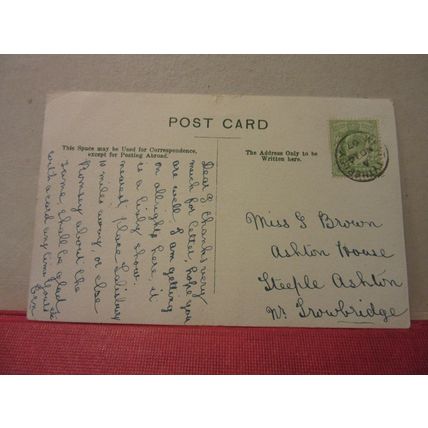 POST CARD
This Space may be Used for Correspondence,
except for Posting Abroad.
The Address Only to be
Written here.
Dear G Thanks very
much for letter, hope you
are well. I am getting
on allright here, it
is a lively show.
nearest place Salisbury
10 miles away, or else
Romsey about the
same, shall be glad
with a card any time
Ern
Miss G Brown
Ashton House
Steeple Ashton
Nr Trowbridge